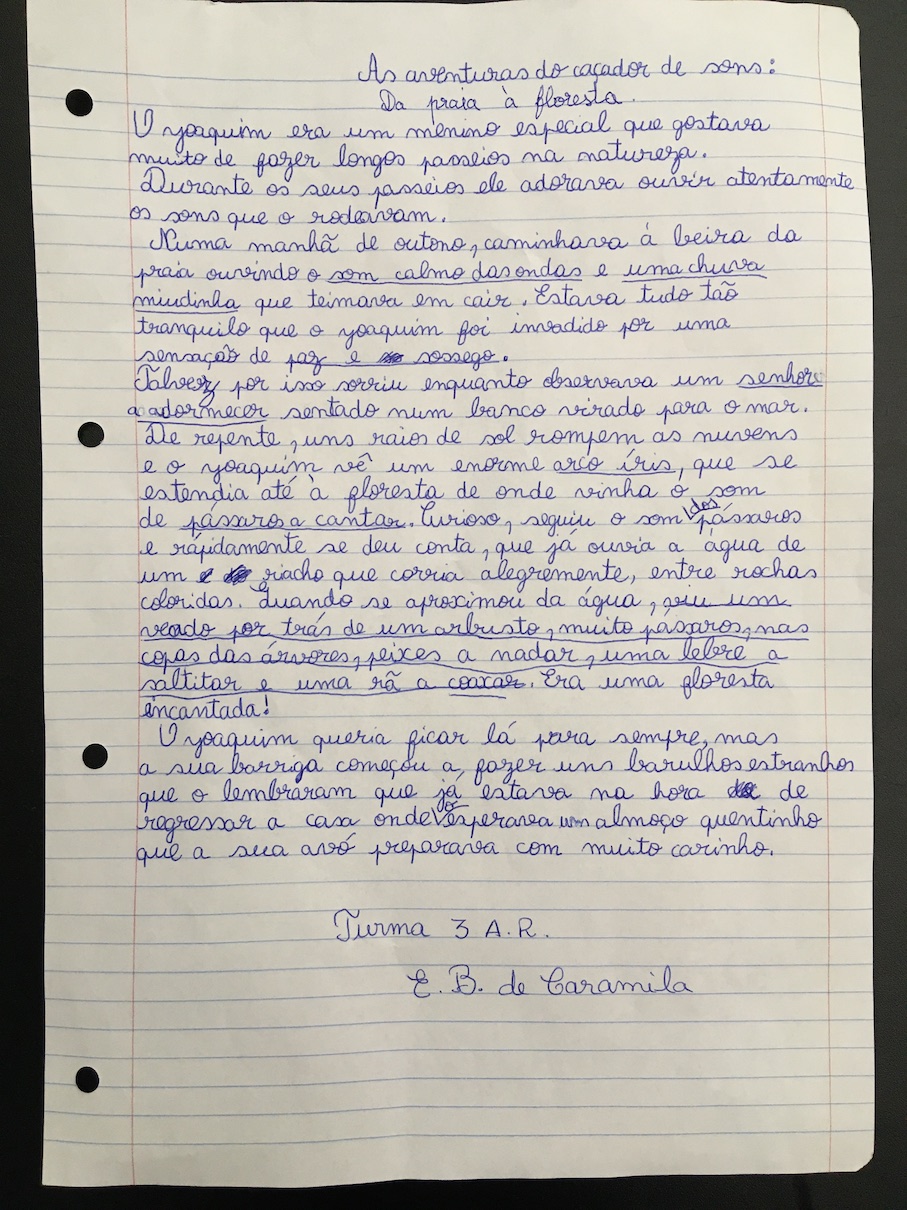 As aventuras do caçador de sons:
Da praia à floresta.
O yoaquim era um menino especial que gostava
muito de fazer longos passeios na natureza.
Durante os seus passeios ele adorava ouvir atentamente
os sons que o rodeavam.
Numa manhã de outono, caminhava á beira da
praia ouvindo o som calmo das ondas e uma chuva
miudinha que teimava em cair. Estava tudo tão
tranquilo que o yoaquim foi invadido por uma
sensação de paz e sossego.
Talvez por isso sorriu enquanto observava um senhor
a adormecer sentado num banco virado para o mar.
De repente, uns raios de sol rompem as nuvens
e o yoaquim vê um enorme arco íris, que se
estendia até à floresta de onde vinha o som
de pássaros a cantar. Curioso, seguiu o som dos pássaros
e rápidamente se deu conta, que já ouvia a água de
um riacho que corria alegremente, entre rochas
coloridas. Quando se aproximou da água, viu um
veado por trás de um arbusto, muito pássaros, nas
copas das árvores, peixes a nadar, uma lebre a
saltitar e uma rã a coaxar. Era uma floresta
encantada!
O yoaquim queria ficar lá para sempre, mas
a sua barriga começou a fazer uns barulhos estranhos
que o lembraram que já estava na hora de
regressar a casa onde o esperava um almoço quentinho
que a sua avó preparava com muito carinho.
Turma 3 A.R.
E. B. de Caramila